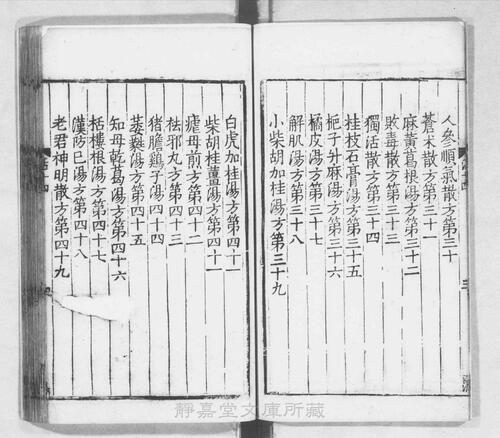 人參順氣散方第三十
蒼朮散方第三十一
麻黃葛根湯方第三十二
敗毒散方第三十三
獨活散方第三十四
桂枝石膏湯方第三十五
梔子升麻湯方第三十六
橘皮湯方第三十七
解肌湯方第三十八
小柴胡加桂湯方第三十九
白虎加桂湯方第四十
柴胡加桂薑湯方第四十一
瘧母煎方第四十二
祛邪丸方第四十三
猪膽雞子湯方第四十四
葳蕤湯方第四十五
知母乾葛湯方第四十六
栝樓根湯方第四十七
漢防己湯方第四十八
老君神明散方第四十九
三
靜嘉堂文庫所藏